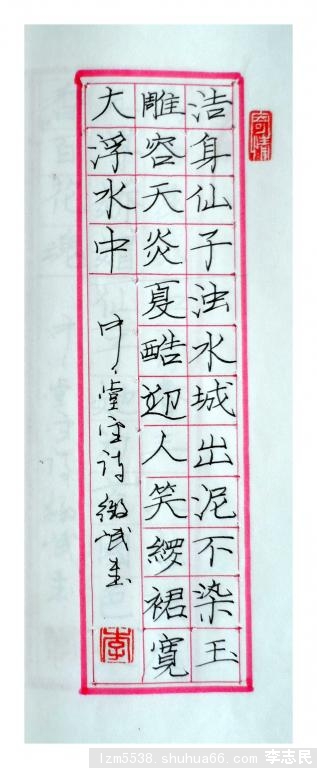 洁身仙子浊水城出泥不染玉
雕容天炎夏酷迎人笑緑裙寬
大浮水中
堂 诗
李
lzm5538.shuhua66.com 李志民